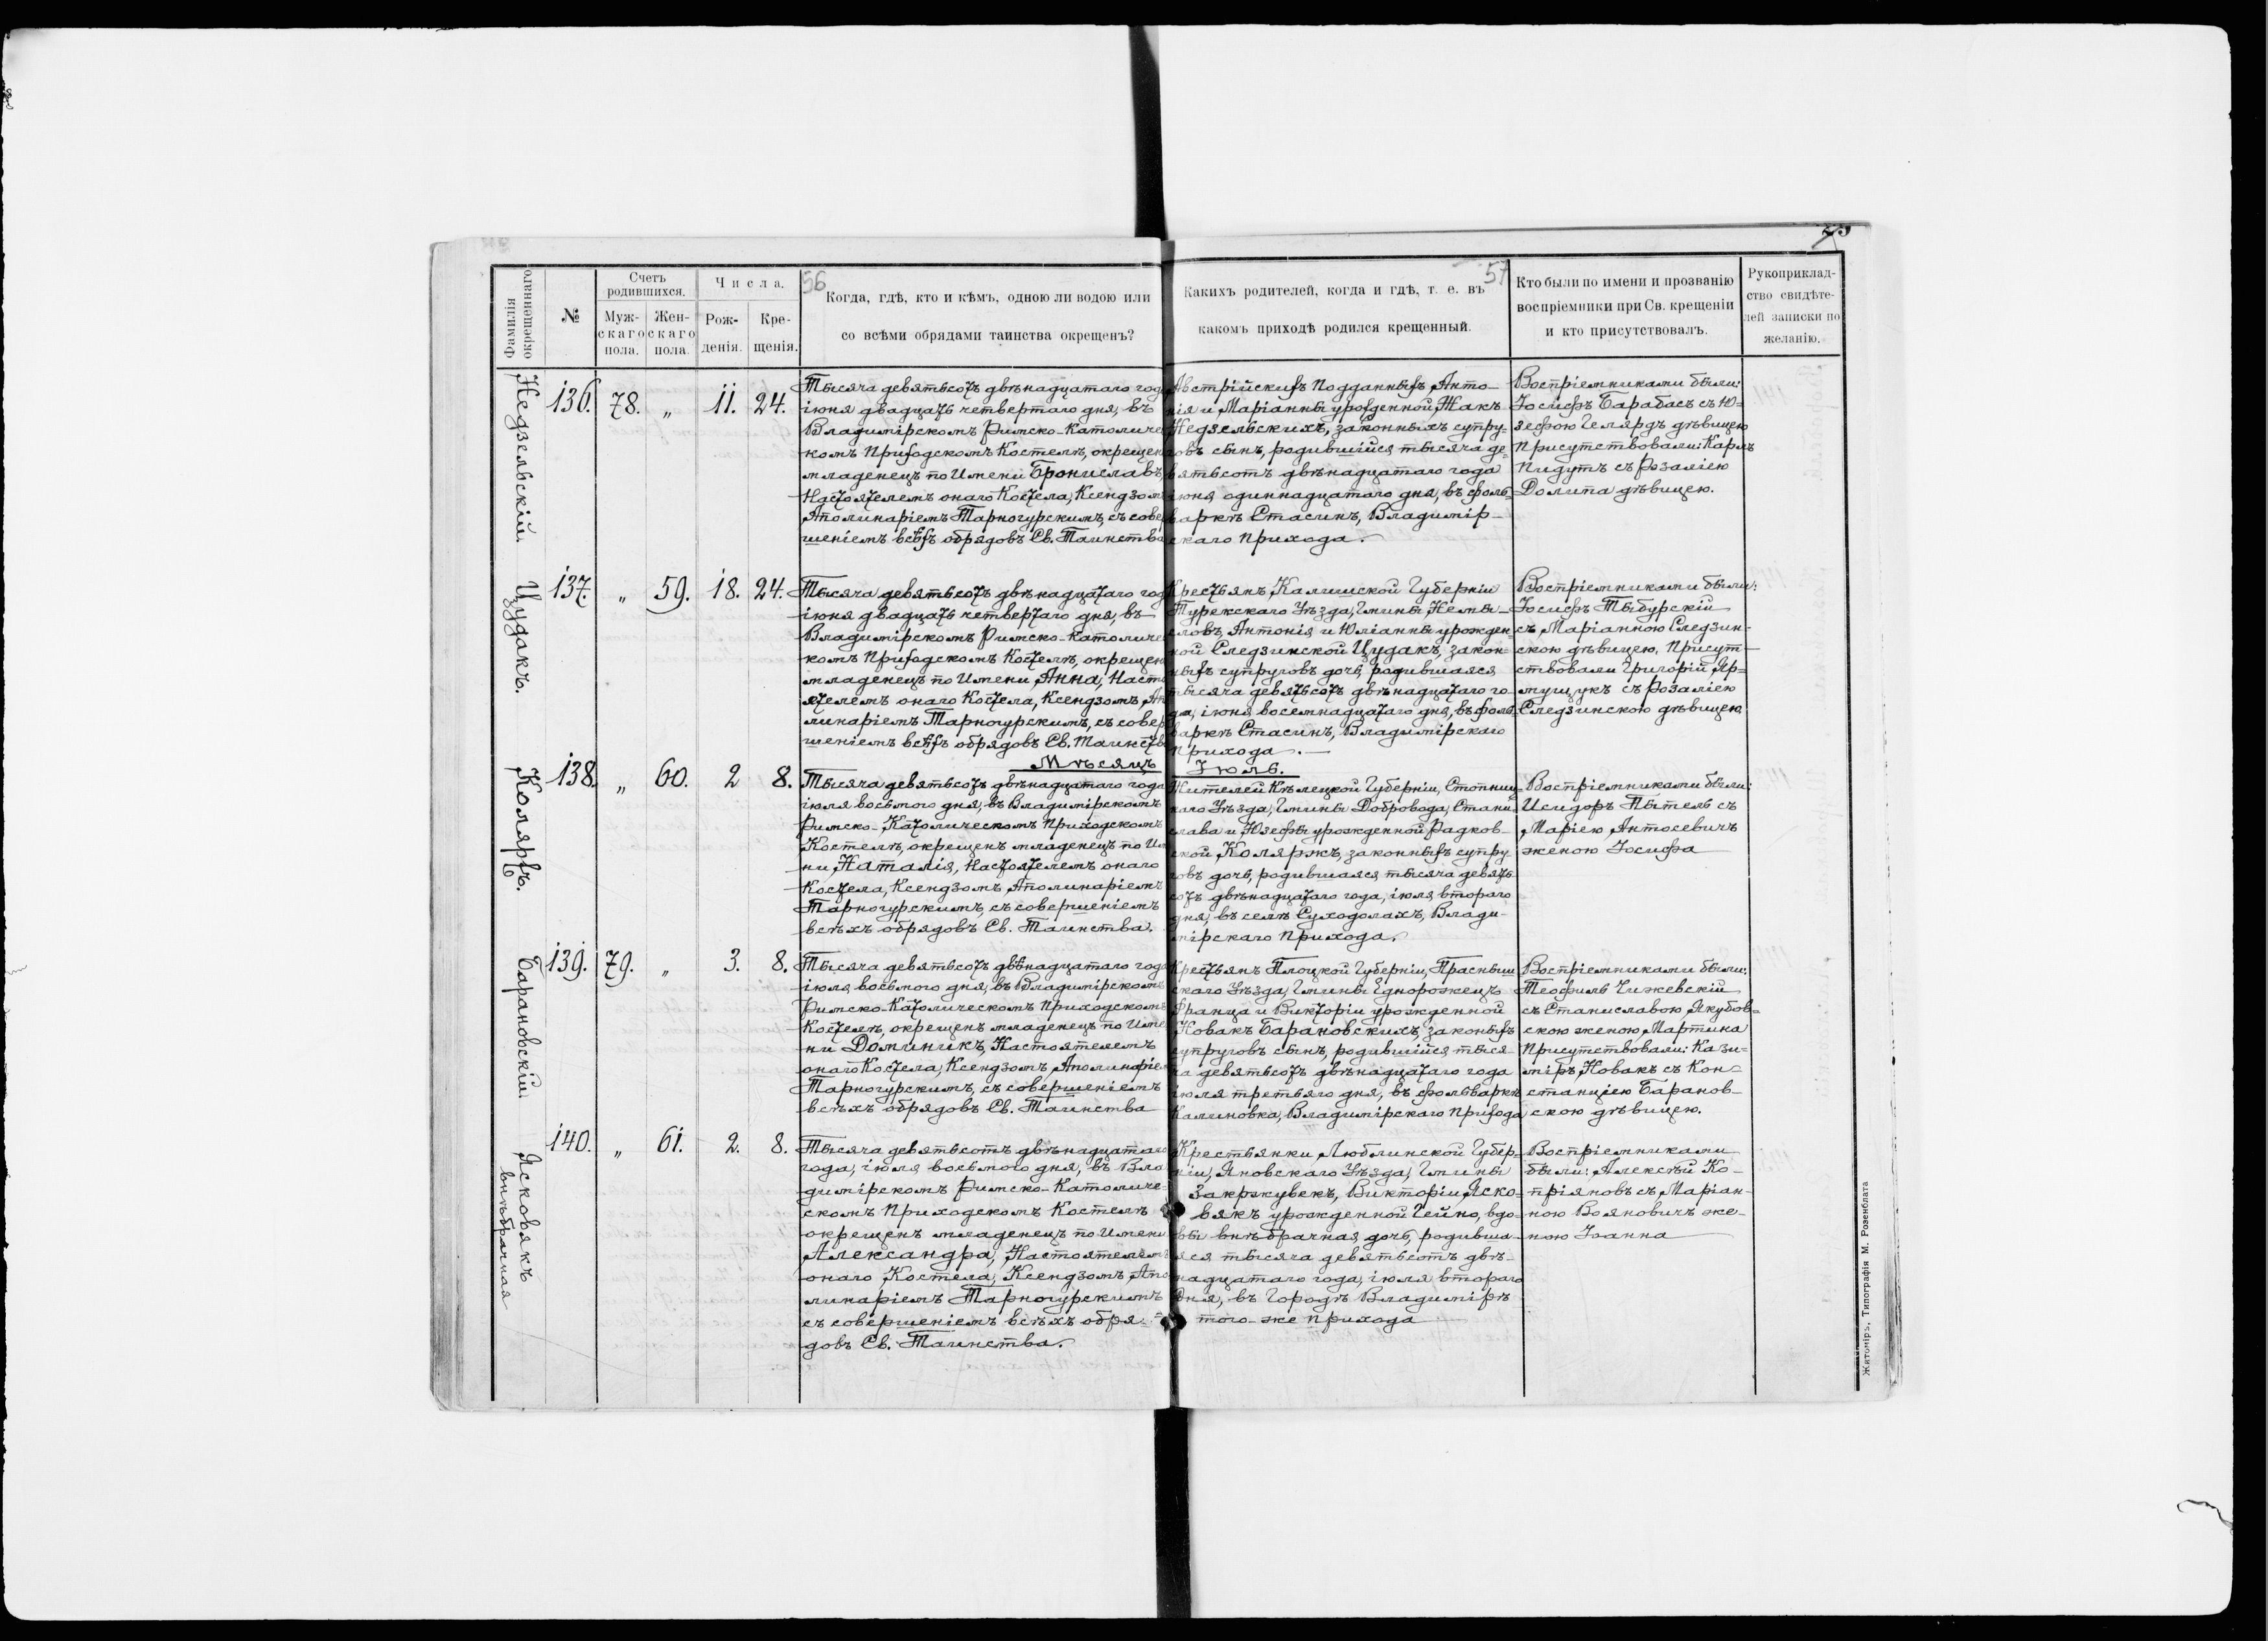 56
57
Фамилія
окрещеннаго
№
Счетъ
родившихся.
Муж-
скаго
пола.
Жен-
скаго
пола.
Числа.
Рож-
денія.
Кре-
щенія.
Когда, гдѣ, кто и кѣмъ, одною ли водою или
со всѣми обрядами таинства окрещенъ?
Какихъ родителей, когда и гдѣ, т. е. въ
какомъ приходѣ родился крещенный.
Кто были по имени и прозванію
воспріемники при Св. крещеніи
и кто присутствовалъ.
Рукоприклад-
ство свидѣте-
лей записки по
желанію.
Недзельскій.
136. 78. „ 11. 24.
Тысяча девятьсотъ двѣнадцатаго год
іюня двадцать четвертаго дня, въ
Владимірскомъ Римско-Католичес
комъ Приходскомъ Костелѣ, окрещенъ
младенецъ по Имени Брониславъ,
Настоятелемъ онаго Костела, Ксендзомъ
Аполинаріемъ Тарногурскимъ, съ совер
шеніемъ всѣхъ обрядовъ Св. Таинства
Австрійскихъ Подданныхъ Анто-
нія и Маріанны урожденной Жакъ
Недзельскихъ, законныхъ супру-
говъ сынъ, родившійся тысяча де-
вятьсотъ двѣнадцатаго года
іюня одиннадцатаго дня, въ фоль-
варкѣ Стасинъ, Владимір-
скаго Прихода.
Воспріемниками были:
Іосифъ Барабасъ съ Ю-
зефою Гелярдъ дѣвицею
Присутствовали: Карлъ
Пидутъ съ Розаліею
Долита дѣвицею.
Цудакъ.
137 „ 59. 18. 24.
Тысяча девятьсотъ двѣнадцатаго год
іюня двадцать четвертаго дня, въ
Владимірскомъ Римско-Католичес
комъ Приходскомъ Костелѣ, окрещенъ
младенецъ по Имени Анна, Насто
ятелемъ онаго Костела, Ксендзомъ Апо
линаріемъ Тарногурскимъ, съ совер
шеніемъ всѣхъ обрядовъ Св. Таинства
Крестьянъ Калишской Губерніи
Турекскаго Уѣзда, Гмины Немы-
словъ, Антонія и Юліанны урожден-
ной Следзинской Цудакъ, закон-
ныхъ супруговъ дочь, родившаяся
тысяча девятьсотъ двѣнадцатаго го-
да, іюня восемнадцатаго дня, въ фоль-
варкѣ Стасинъ, Владимірскаго
Прихода.
Воспріемниками были:
Іосифъ Тыбурскій
съ Маріанною Следзин-
скою дѣвицею. Присут-
ствовали Григорій Яр-
мущукъ съ Розаліею
Следзинскою дѣвицею.
Мѣсяцъ Іюль.
Коляржъ.
138. „ 60. 2 8.
Тысяча девятьсотъ двѣнадцатаго года
іюля восьмого дня, въ Владимірскомъ
Римско-Католическомъ Приходскомъ
Костелѣ, окрещенъ младенецъ по Им
ни Наталія, Настоятелемъ онаго
Костела, Ксендзомъ Аполинаріемъ
Тарногурскимъ, съ совершеніемъ
всѣхъ обрядовъ Св. Таинства.
Жителей Кѣлецкой Губерніи, Стопниц-
каго Уѣзда, Гмины Добровода, Стани-
слава и Юзефы урожденной Радков-
ской Коляржъ, законныхъ супру-
говъ дочь, родившаяся тысяча девять-
сотъ двѣнадцатаго года, іюля второго
дня, въ селѣ Суходолахъ, Влади-
мірскаго Прихода.
Воспріемниками были:
Исидоръ Пытель съ
Маріею Антосевичъ
женою Іосифа
Барановскій.
139. 79. „ 3. 8.
Тысяча девятьсотъ двѣнадцатаго года
іюля восьмого дня, въ Владимірскомъ
Римско-Католическомъ Приходскомъ
Костелѣ, окрещенъ младенецъ по Име
ни Доминикъ, Настоятелемъ
онаго Костела, Ксендзомъ Аполинаріем
Тарногурскимъ, съ совершеніемъ
всѣхъ обрядовъ Св. Таинства
Крестьянъ Плоцкой Губерніи, Праснышс
скаго Уѣзда, Гмины Еднорожецъ
Франца и Викторіи урожденной
Новакъ Барановскихъ, законныхъ
супруговъ сынъ, родившійся тыся-
ча девятьсотъ двѣнадцатаго года
іюля третьяго дня, въ фольваркѣ
Калиновка, Владимірскаго Прихода
Воспріемниками были:
Теофиль Чижевскій
съ Станиславою Якубов-
скою женою Мартина
Присутствовали: Кази-
міръ Новакъ съ Кон-
станціею Баранов-
скою дѣвицею.
Ясковякъ
внѣбрачная
140. „ 61. 2. 8.
Тысяча девятьсотъ двѣнадцатаго
года, іюля восьмого дня, въ Вла
димірскомъ Римско-Католиче-
скомъ Приходскомъ Костелѣ
окрещенъ младенецъ по Имени
Александра, Настоятелемъ
онаго Костела, Ксендзомъ Апо
линаріемъ Тарногурскимъ
съ совершеніемъ всѣхъ обря-
довъ Св. Таинства.
Крестьянки Люблинской Губер-
ніи, Яновскаго Уѣзда, Гмины
Закржувекъ, Викторіи Яско-
вякъ урожденной Гейно, вдо-
вы внѣбрачная дочь, родивша-
яся тысяча девятьсотъ двѣ-
надцатаго года, іюля второго
дня, въ Городѣ Владимірѣ
того-же Прихода
Воспріемниками
были: Алексѣй Ко-
пріяновъ съ Маріан-
ною Вояновичъ же-
ною Іоанна
Житоміръ, Типографія М. Розенблата